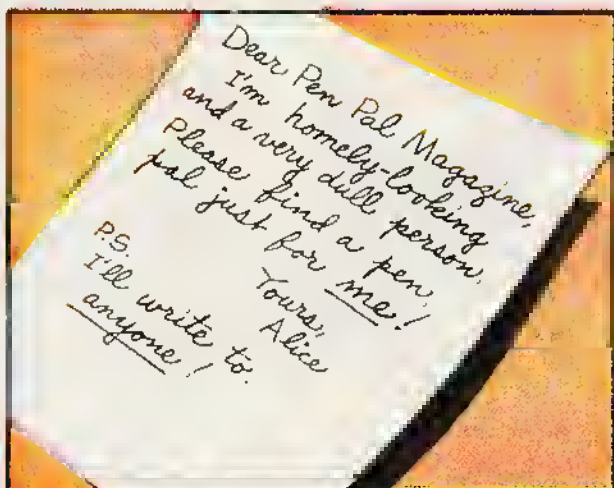 Dear Pen Pal Magazine,
I'm homely-looking
and a very dull person.
Please find a pen
pal just for me!
Yours,
Alice
P.S.
I'll write to
anyone!